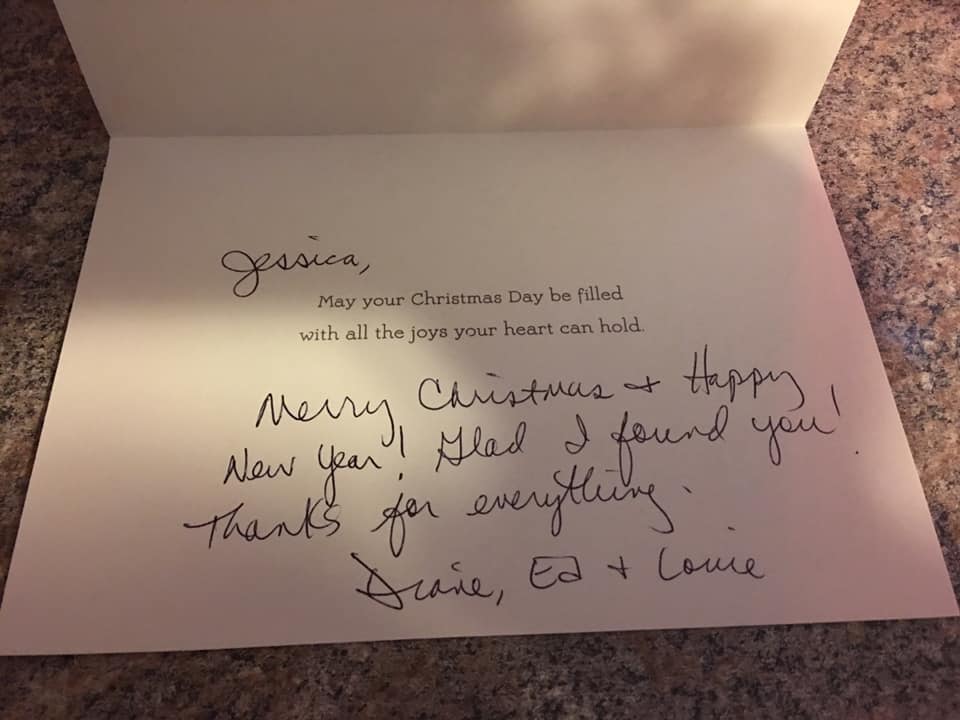 Jessica,
May your Christmas Day be filled
with all the joys your heart can hold.
Merry Christmas + Happy
New Year! Glad I found you!
Thanks for everything.
Diane, Ed + Louie